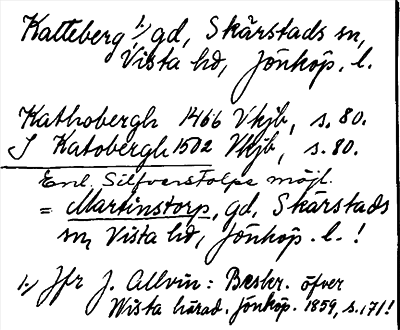 Katteberg 1) gd, Skärstads sn,
Vista hd, Jönköp. l.
Kathobergh 1466 Vkjb, s. 80.
I Katobergh 1502 Vkjb, s. 80.
Enl. Silfverstolpe möjl.
= Martinstorp, gd, Skärstads
sn, Vista hd, Jönköp. l.!
1) Jfr J. Allvin: Beskr. öfver
Wista härad. Jönköp. 1859, s. 171!